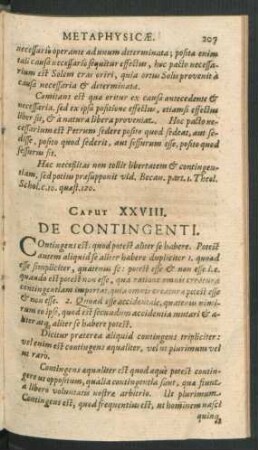 METAPHYSICÆ. 207
necessariò operante ad unum determinata; positâ enim
tali causâ necessariò sequitur effectus, hoc pacto necessa-
rium est Solem cras oriri, quia ortus Solis provenit à
causâ necessaria & determinata.
Comitans est qua oritur ex causâ antecedente &
necessaria, sed ex ipsâ positione effectus, etiamsi effectus
liber sit, & à natura libera proveniat. Hoc pacto ne-
cessarium est Petrum sedere posito quod sedeat, aut se-
disse, posito quod sederit, aut sessurum esse, posito quod
sessurus sit.
Hac necessitas non tollit libertatem & contingen-
tiam, sed potius præsupponit vid. Becan. part. 1. Theol.
Schol. c. 10. quæst. 120.
CAPUT XXVIII.
DE CONTINGENTI.
COntingens est: quod potest aliter se habere. Potest
autem aliquid se aliter habere dupliciter 1. quoad
esse simpliciter, quatenus sc: potest esse & non esse. i.e.
quando est potest non esse, qua ratione omnis creatura
contingentiam importat, quia omnis creatura potest esse
& non esse. 2. Quoad esse accidentale, quatenus nimi-
rum res ipsa, quoad est secundùm accidentia mutari & a-
liter atq, aliter se habere potest.
Dicitur præterea aliquid contingens tripliciter:
vel enim est contingens æqualiter, vel ut plurimum vel
ut raro.
Contingens æqualiter est quod æquè potest contin-
gere ut oppositum, qualia contingentia sunt, qua fiunt
a libero voluntatis nostræ arbitrio. Ut plurimum
Contingens est, quod frequentius est, ut hominem nasci
quinq